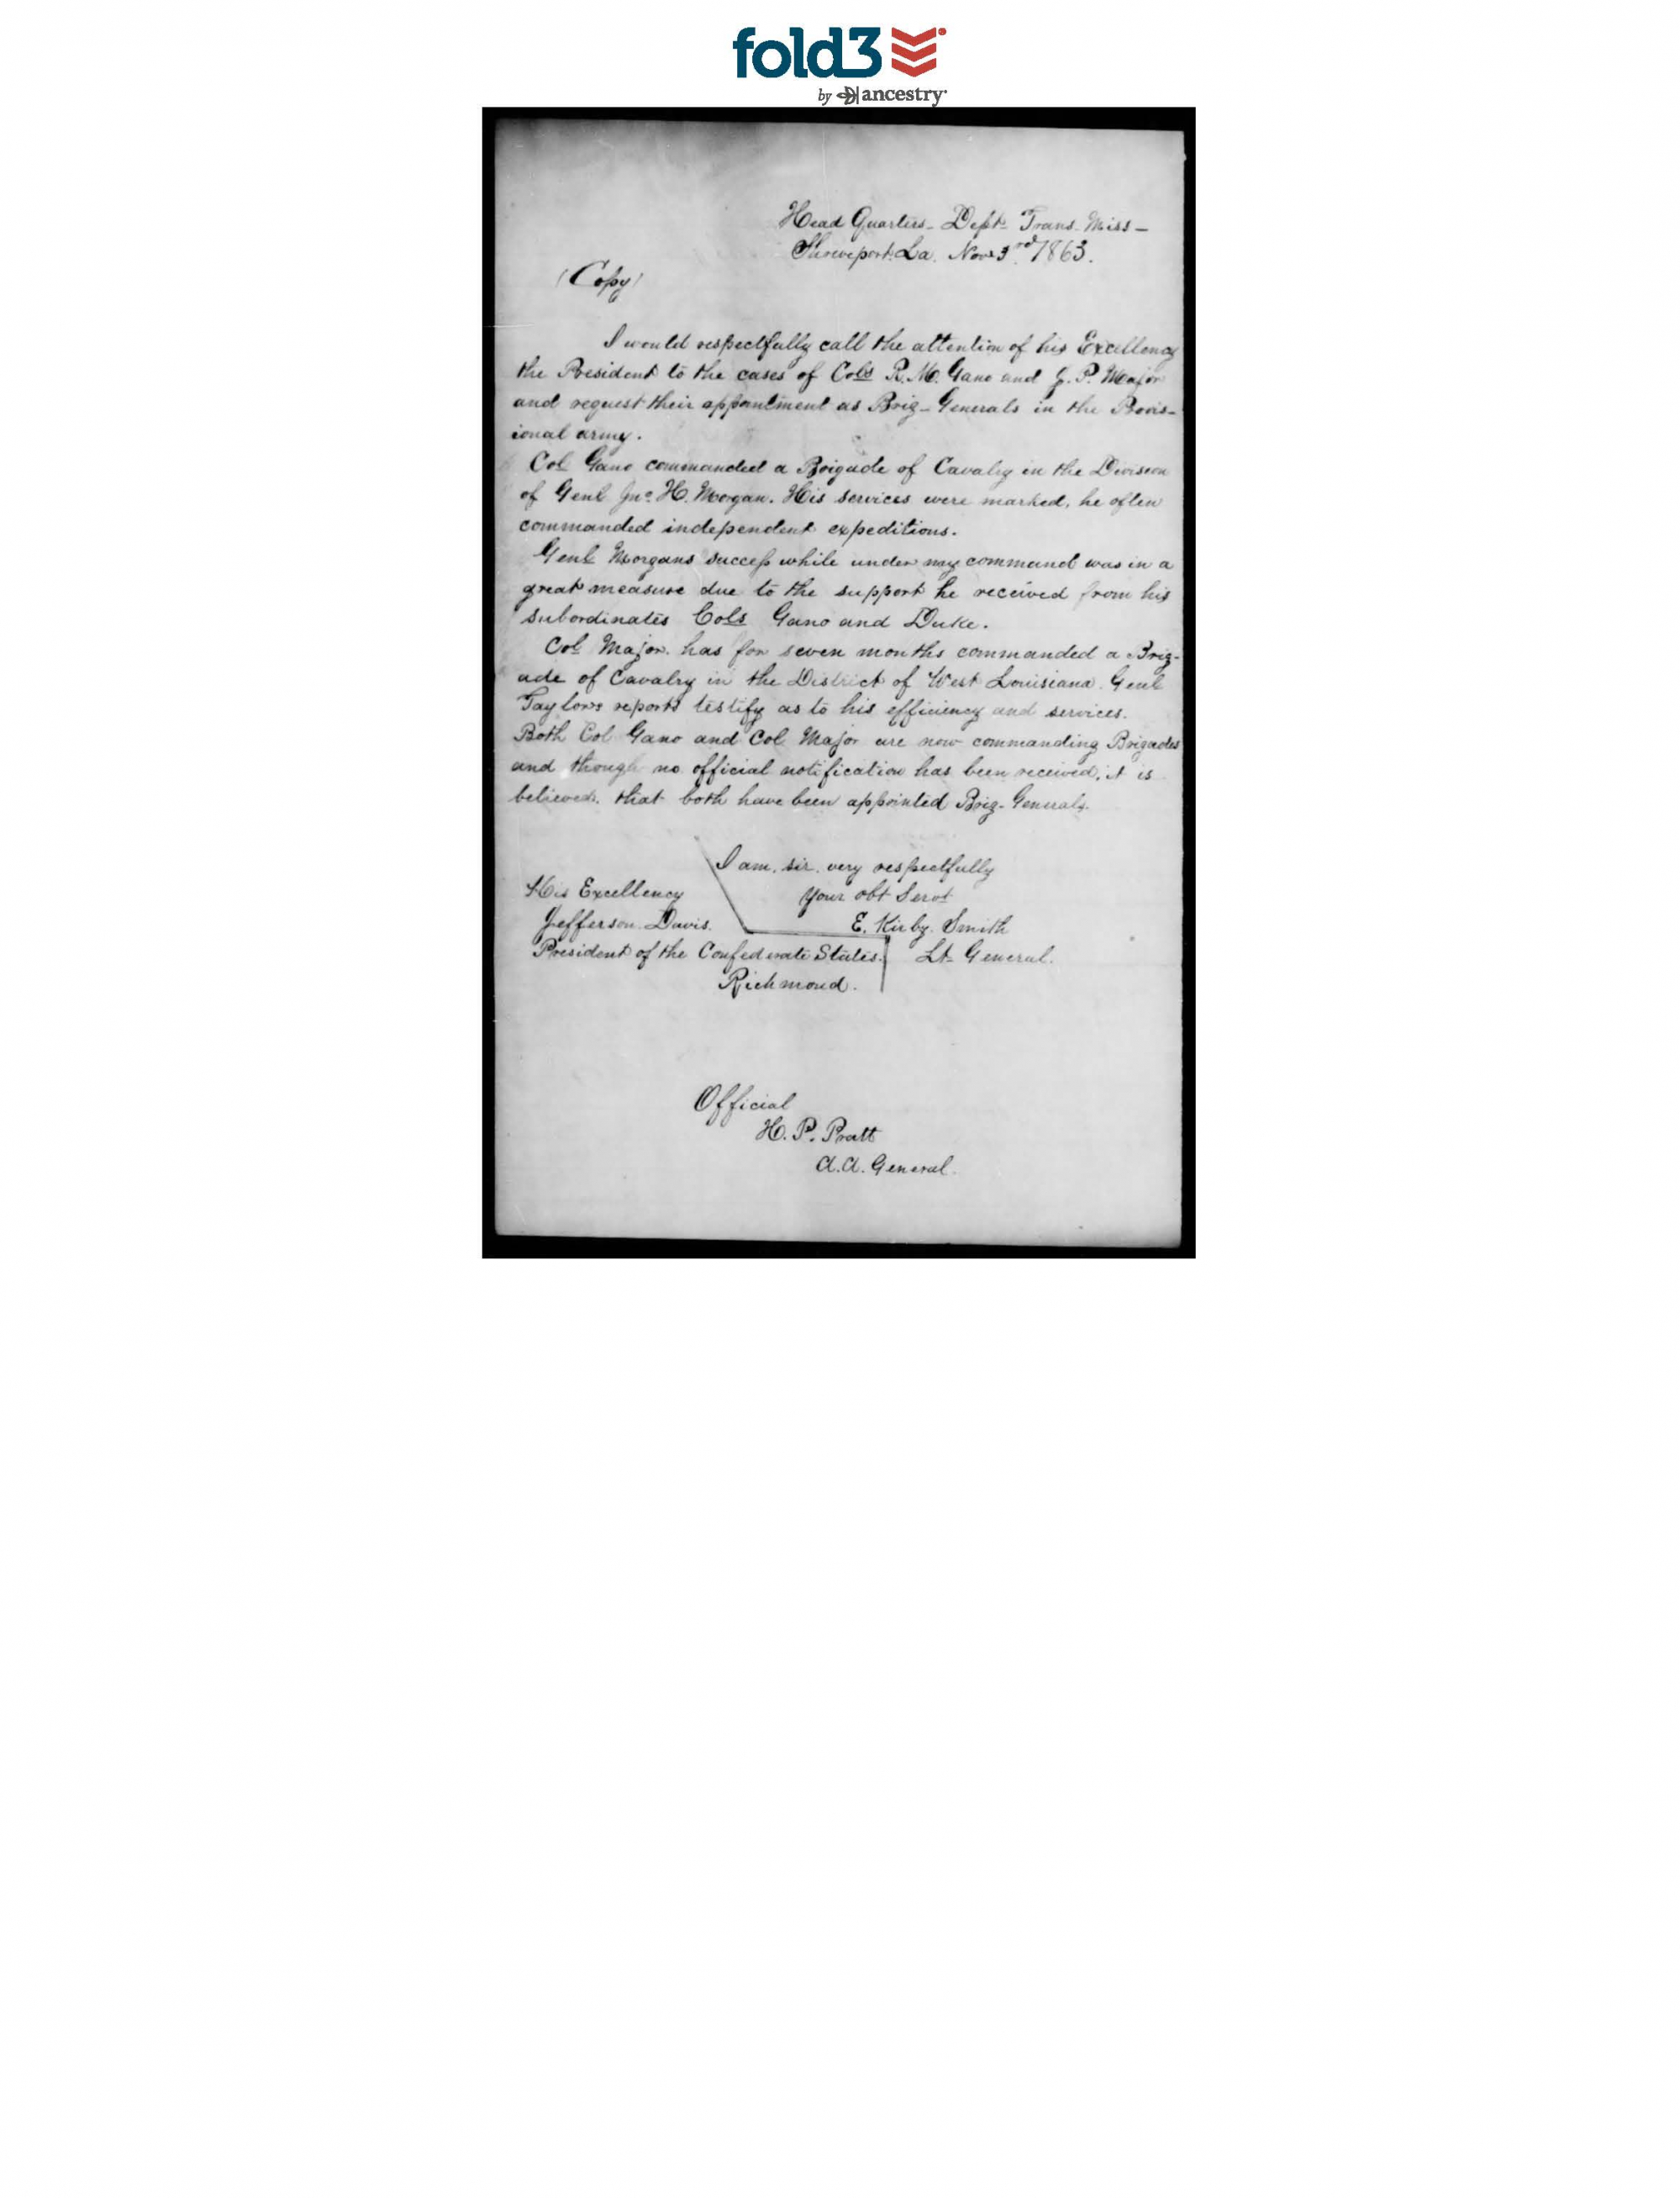 fold3
by ancestry
Head Quarters - Dept. Trans. Miss -
Shreveport. La. Nov. 3rd 1863.
(Copy)
I would respectfully call the attention of his Excellency
the President to the cases of Cols R. M. Gano and J. P. Major
and request their appointment as Brig - Generals in the Provis-
ional army.
Col Gano commanded a Brigade of Cavalry in the Division
of Genl Jno. H. Morgan. His services were marked, he often
commanded independent expeditions.
Genl Morgans success while under my command was in a
great measure due to the support he received from his
subordinates Cols Gano and Duke.
Col Major. has for seven months commanded a Brig-
ade of Cavalry in the District of West Louisiana. Genl
Taylors reports testify as to his efficiency and services.
Both Col Gano and Col Major are now commanding Brigades
and though no official notification has been received, it is
believed. that both have been appointed Brig- Generals.
I am, sir, very respectfully
Your obt Servt
E. Kirby. Smith
Lt- General.
His Excellency
Jefferson. Davis.
President of the Confederate States.
Richmond.
Official
H. P. Pratt
A. A. General.